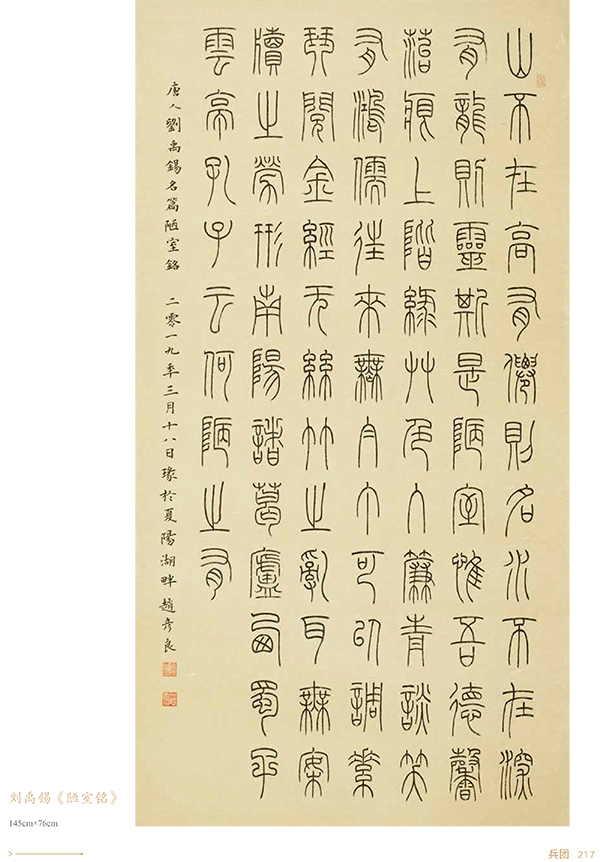 山不在高有僊則名水不在深
有龍則靈斯是陋室惟吾德馨
菭痕上階綠艸色入簾青談笑
有鴻儒往來無白丁可以調素
琴閱金經无絲竹之亂耳無案
牘之勞形南陽諸葛廬西蜀子
雲亭孔子云何陋之有
唐人劉禹錫名篇陋室銘 二零一九年三月十八日瑑於夏陽湖畔 趙彥良
刘禹锡《陋室铭》
145cm×76cm
兵团 217